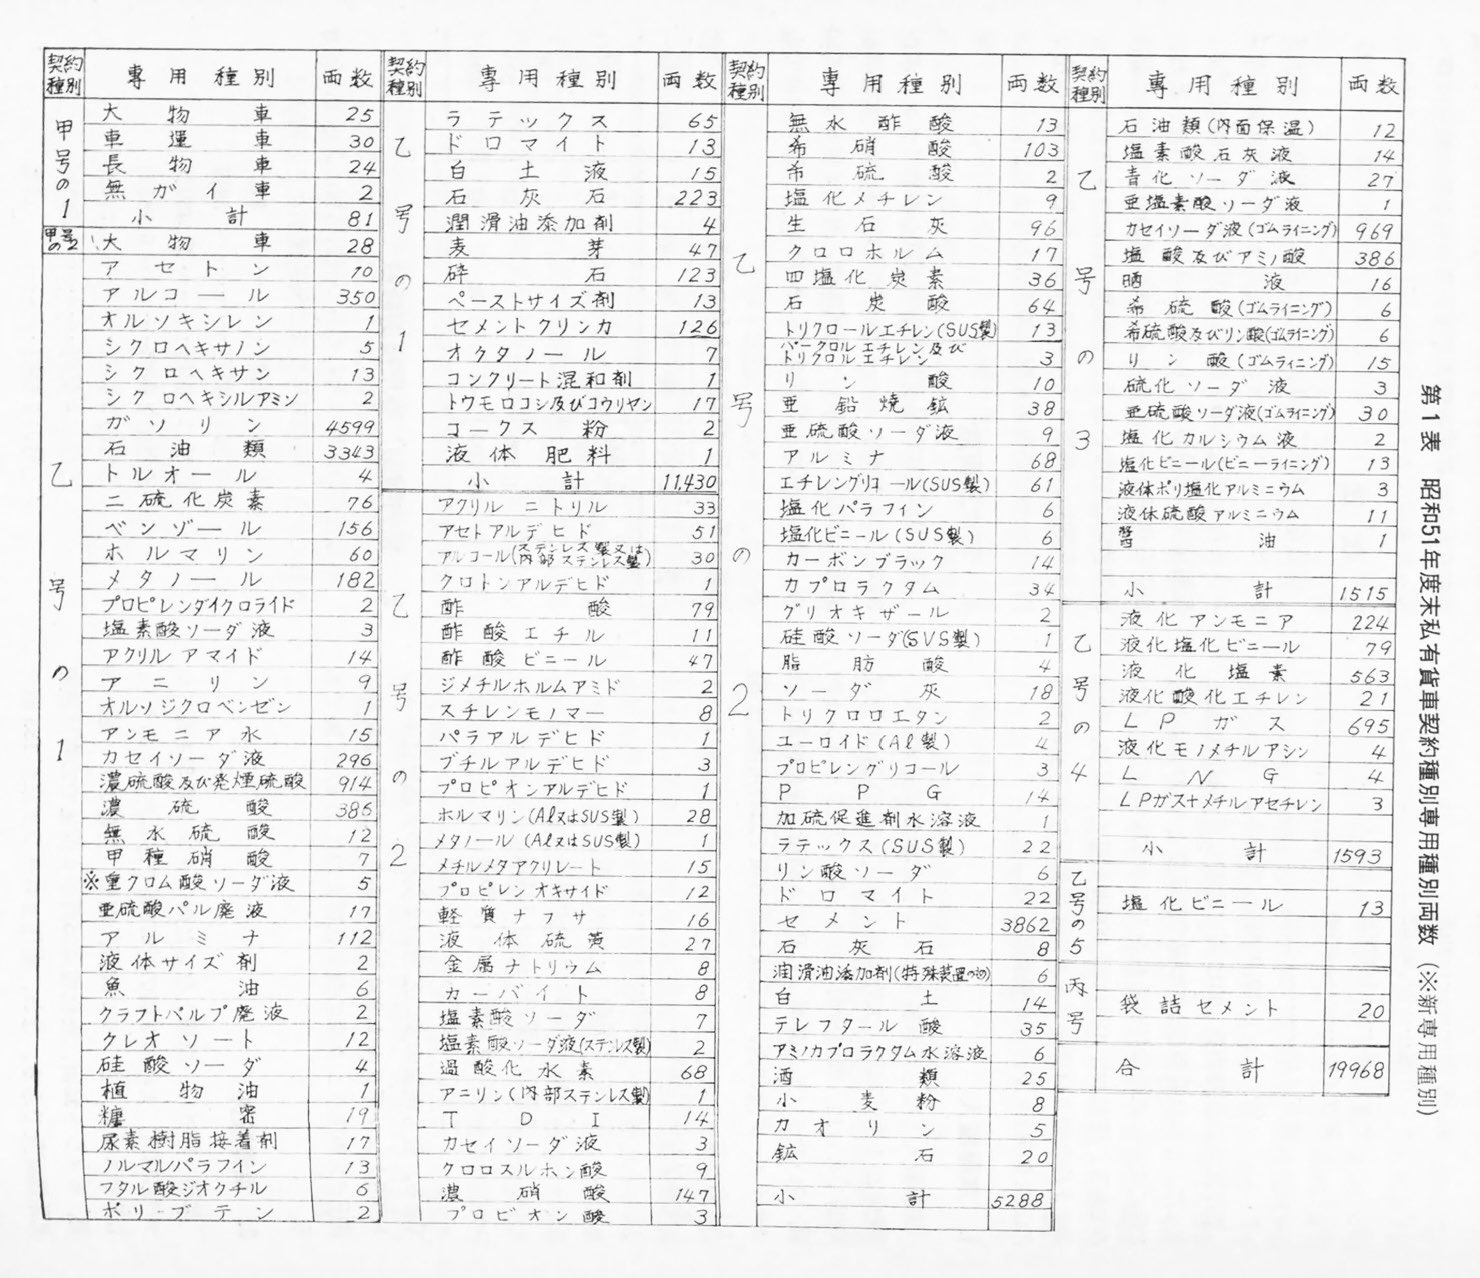 第1表 昭和51年度末私有貨車契約種別専用種別両数 (※新専用種別)
契約種別 専用種別 両数
甲号の1
大物車 25
車運車 30
長物車 24
無ガイ車 2
小計 81
甲号の2
大物車 28
乙号の1
アセトン 10
アルコール 350
オルソキシレン 1
シクロヘキサノン 5
シクロヘキサン 13
シクロヘキシルアミン 2
ガソリン 4599
石油類 3343
トルオール 4
二硫化炭素 76
ベンゾール 156
ホルマリン 60
メタノール 182
プロピレンダイクロライド 2
塩素酸ソーダ液 3
アクリルアマイド 14
アニリン 9
オルソジクロベンゼン 1
アンモニア水 15
カセイソーダ液 296
濃硫酸及び発煙硫酸 914
濃硫酸 386
無水硫酸 12
甲種硝酸 7
※重クロム酸ソーダ液 5
亜硫酸パルプ廃液 17
アルミナ 112
液体サイズ剤 2
魚油 6
クラフトパルプ廃液 2
クレオソート 12
硅酸ソーダ 4
植物油 1
糖密 19
尿素樹脂接着剤 17
ノルマルパラフイン 13
フタル酸ジオクチル 6
ポリーブテン 2
契約種別 専用種別 両数
乙号の1
ラテックス 65
ドロマイト 13
白土液 15
石灰石 223
潤滑油添加剤 4
麦芽 47
砕石 123
ペーストサイズ剤 13
セメントクリンカ 126
オクタノール 7
コンクリート混和剤 1
トウモロコシ及びコウリヤン 17
コークス粉 2
液体肥料 1
小計 11,430
乙号の2
アクリルニトリル 33
アセトアルデヒド 51
アルコール(ステンレス製又は内部ステンレス製) 30
クロトンアルデヒド 1
酢酸 79
酢酸エチル 11
酢酸ビニール 47
ジメチルホルムアミド 2
スチレンモノマー 8
パラアルデヒド 1
ブチルアルデヒド 3
プロピオンアルデヒド 1
ホルマリン(Al又はSUS製) 28
メタノール(Al又はSUS製) 1
メチルメタアクリレート 15
プロピレンオキサイド 12
軽質ナフサ 16
液体硫黄 27
金属ナトリウム 8
カーバイト 8
塩素酸ソーダ 7
塩素酸ソーダ液(ステンレス製) 2
過酸化水素 68
アニリン(内部ステンレス製) 1
TDI 14
カセイソーダ液 3
クロロスルホン酸 9
濃硝酸 147
プロピオン酸 3
契約種別 専用種別 両数
乙号の2
無水酢酸 13
希硝酸 103
希硫酸 2
塩化メチレン 9
生石灰 96
クロロホルム 17
四塩化炭素 36
石炭酸 64
トリクロールエチレン(SUS製) 13
パークロルエチレン及びトリクロルエチレン 3
リン酸 10
亜鉛焼鉱 38
亜硫酸ソーダ液 9
アルミナ 68
エチレングリコール(SUS製) 61
塩化パラフイン 6
塩化ビニール(SUS製) 6
カーボンブラック 14
カプロラクタム 34
グリオキザール 2
硅酸ソーダ(SUS製) 1
脂肪酸 4
ソーダ灰 18
トリクロロエタン 2
ユーロイド(Al製) 4
プロピレングリコール 3
PPG 14
加硫促進剤水溶液 1
ラテックス(SUS製) 22
リン酸ソーダ 6
ドロマイト 22
セメント 3862
石灰石 8
潤滑油添加剤(特殊装置のもの) 6
白土 14
テレフタール酸 35
アミノカプロラクタム水溶液 6
酒類 25
小麦粉 8
カオリン 5
鉱石 20
小計 5288
契約種別 専用種別 両数
乙号の3
石油類(内面保温) 12
塩素酸石灰液 14
青化ソーダ液 27
亜塩素酸ソーダ液 1
カセイソーダ液(ゴムライニング) 969
塩酸及びアミノ酸 386
晒液 16
希硫酸(ゴムライニング) 6
希硫酸及びリン酸(ゴムライニング) 6
リン酸(ゴムライニング) 15
硫化ソーダ液 3
亜硫酸ソーダ液(ゴムライニング) 30
塩化カルシウム液 2
塩化ビニール(ビニーライニング) 13
液体ポリ塩化アルミニウム 3
液体硫酸アルミニウム 11
醬油 1
小計 1515
乙号の4
液化アンモニア 224
液化塩化ビニール 79
液化塩素 563
液化酸化エチレン 21
LPガス 695
液化モノメチルアミン 4
LNG 4
LPガス+メチルアセチレン 3
小計 1593
乙号の5
塩化ビニール 13
丙号
袋詰セメント 20
合計 19968